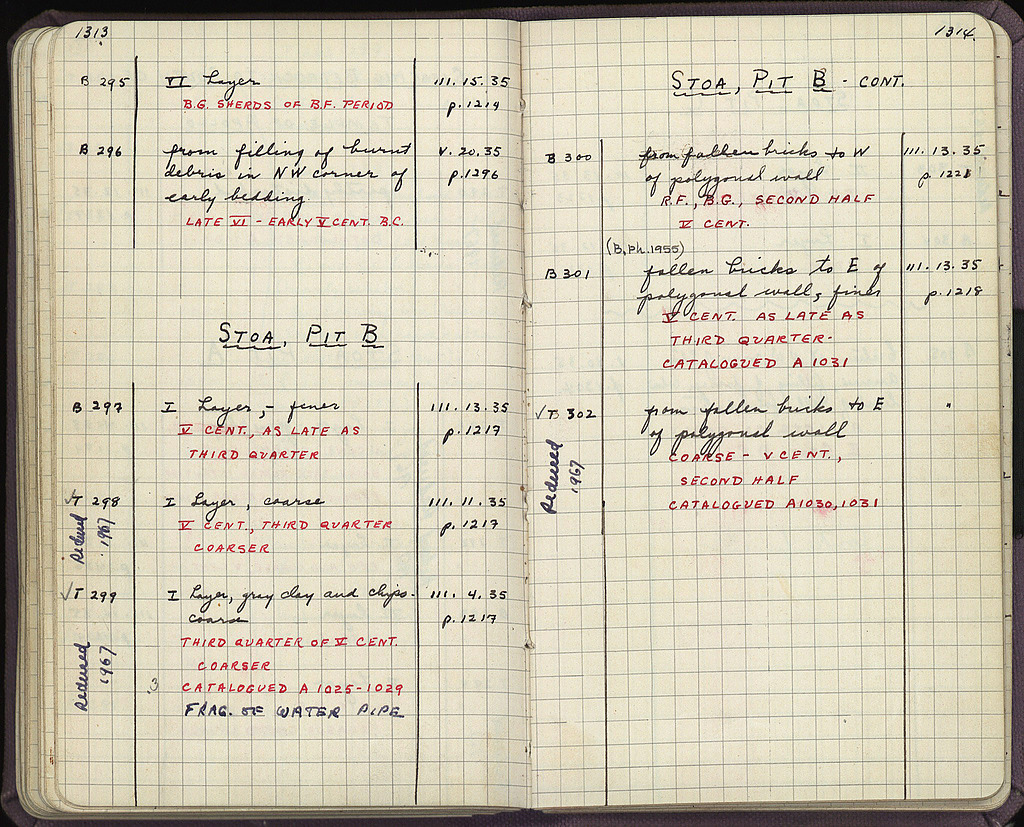 1313
B 295 VI Layer III. 15. 35
B.G. SHERDS OF B.F. PERIOD p. 1214
B 296 from filling of burnt V. 20. 35
debris in NW corner of p. 1296
early bedding.
LATE VI - EARLY V CENT. B.C.
STOA, PIT B
B 297 I Layer, - finer III. 13. 35
V CENT., AS LATE AS p. 1217
THIRD QUARTER
√T 298 I Layer, coarse III. 11. 35
V CENT., THIRD QUARTER p. 1217
COARSER
Reduced 1967
√T 299 I Layer, gray clay and chips - III. 4. 35
coarse p. 1217
THIRD QUARTER OF V CENT.
COARSER
3 CATALOGUED A 1025-1029
FRAG. OF WATER PIPE
Reduced 1967
1314
STOA, PIT B - CONT.
B 300 from fallen bricks to W III. 13. 35
of polygonal wall p. 1221
R.F., B.G., SECOND HALF
V CENT.
(B, Ph. 1955)
B 301 fallen bricks to E of III. 13. 35
polygonal wall, finer p. 1218
V CENT. AS LATE AS
THIRD QUARTER-
CATALOGUED A 1031
√T 302 from fallen bricks to E "
of polygonal wall
COARSE - V CENT.,
SECOND HALF
CATALOGUED A1030, 1031
Reduced 1967